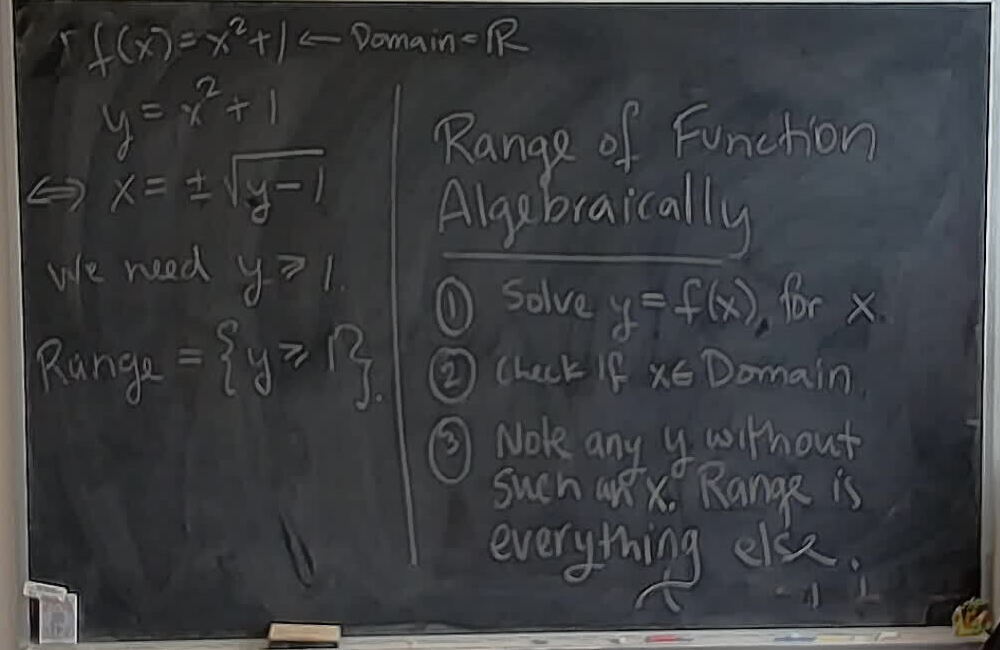 f(x) = x² + 1 ← Domain = ℝ
y = x² + 1
⇔ x = ± √(y − 1)
We need y ≥ 1.
Range = {y ≥ 1}.
Range of Function
Algebraically
① Solve y = f(x), for x.
② Check if x ∈ Domain.
③ Note any y without
such an x. Range is
everything else.